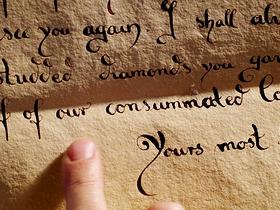 see you again I shall al
studded diamonds you ga
f of our consummated Co
Yours most